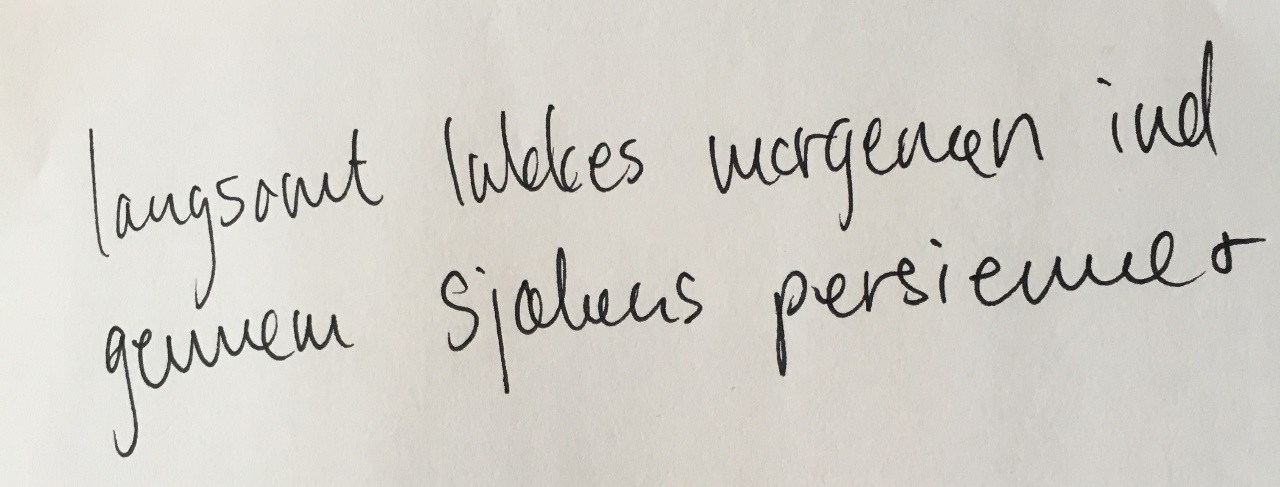 langsomt lukkes morgenen ind
gennem sjælens persienner